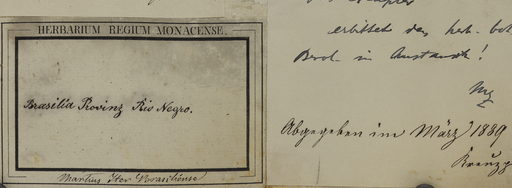 HERBARIUM REGIUM MONACENSE.
Brasilia Provinz Rio Negro.
Martius Iter Brasiliense
erbittet das herb. bot.
Berol. in Austausch!
Abgegeben im März 1889